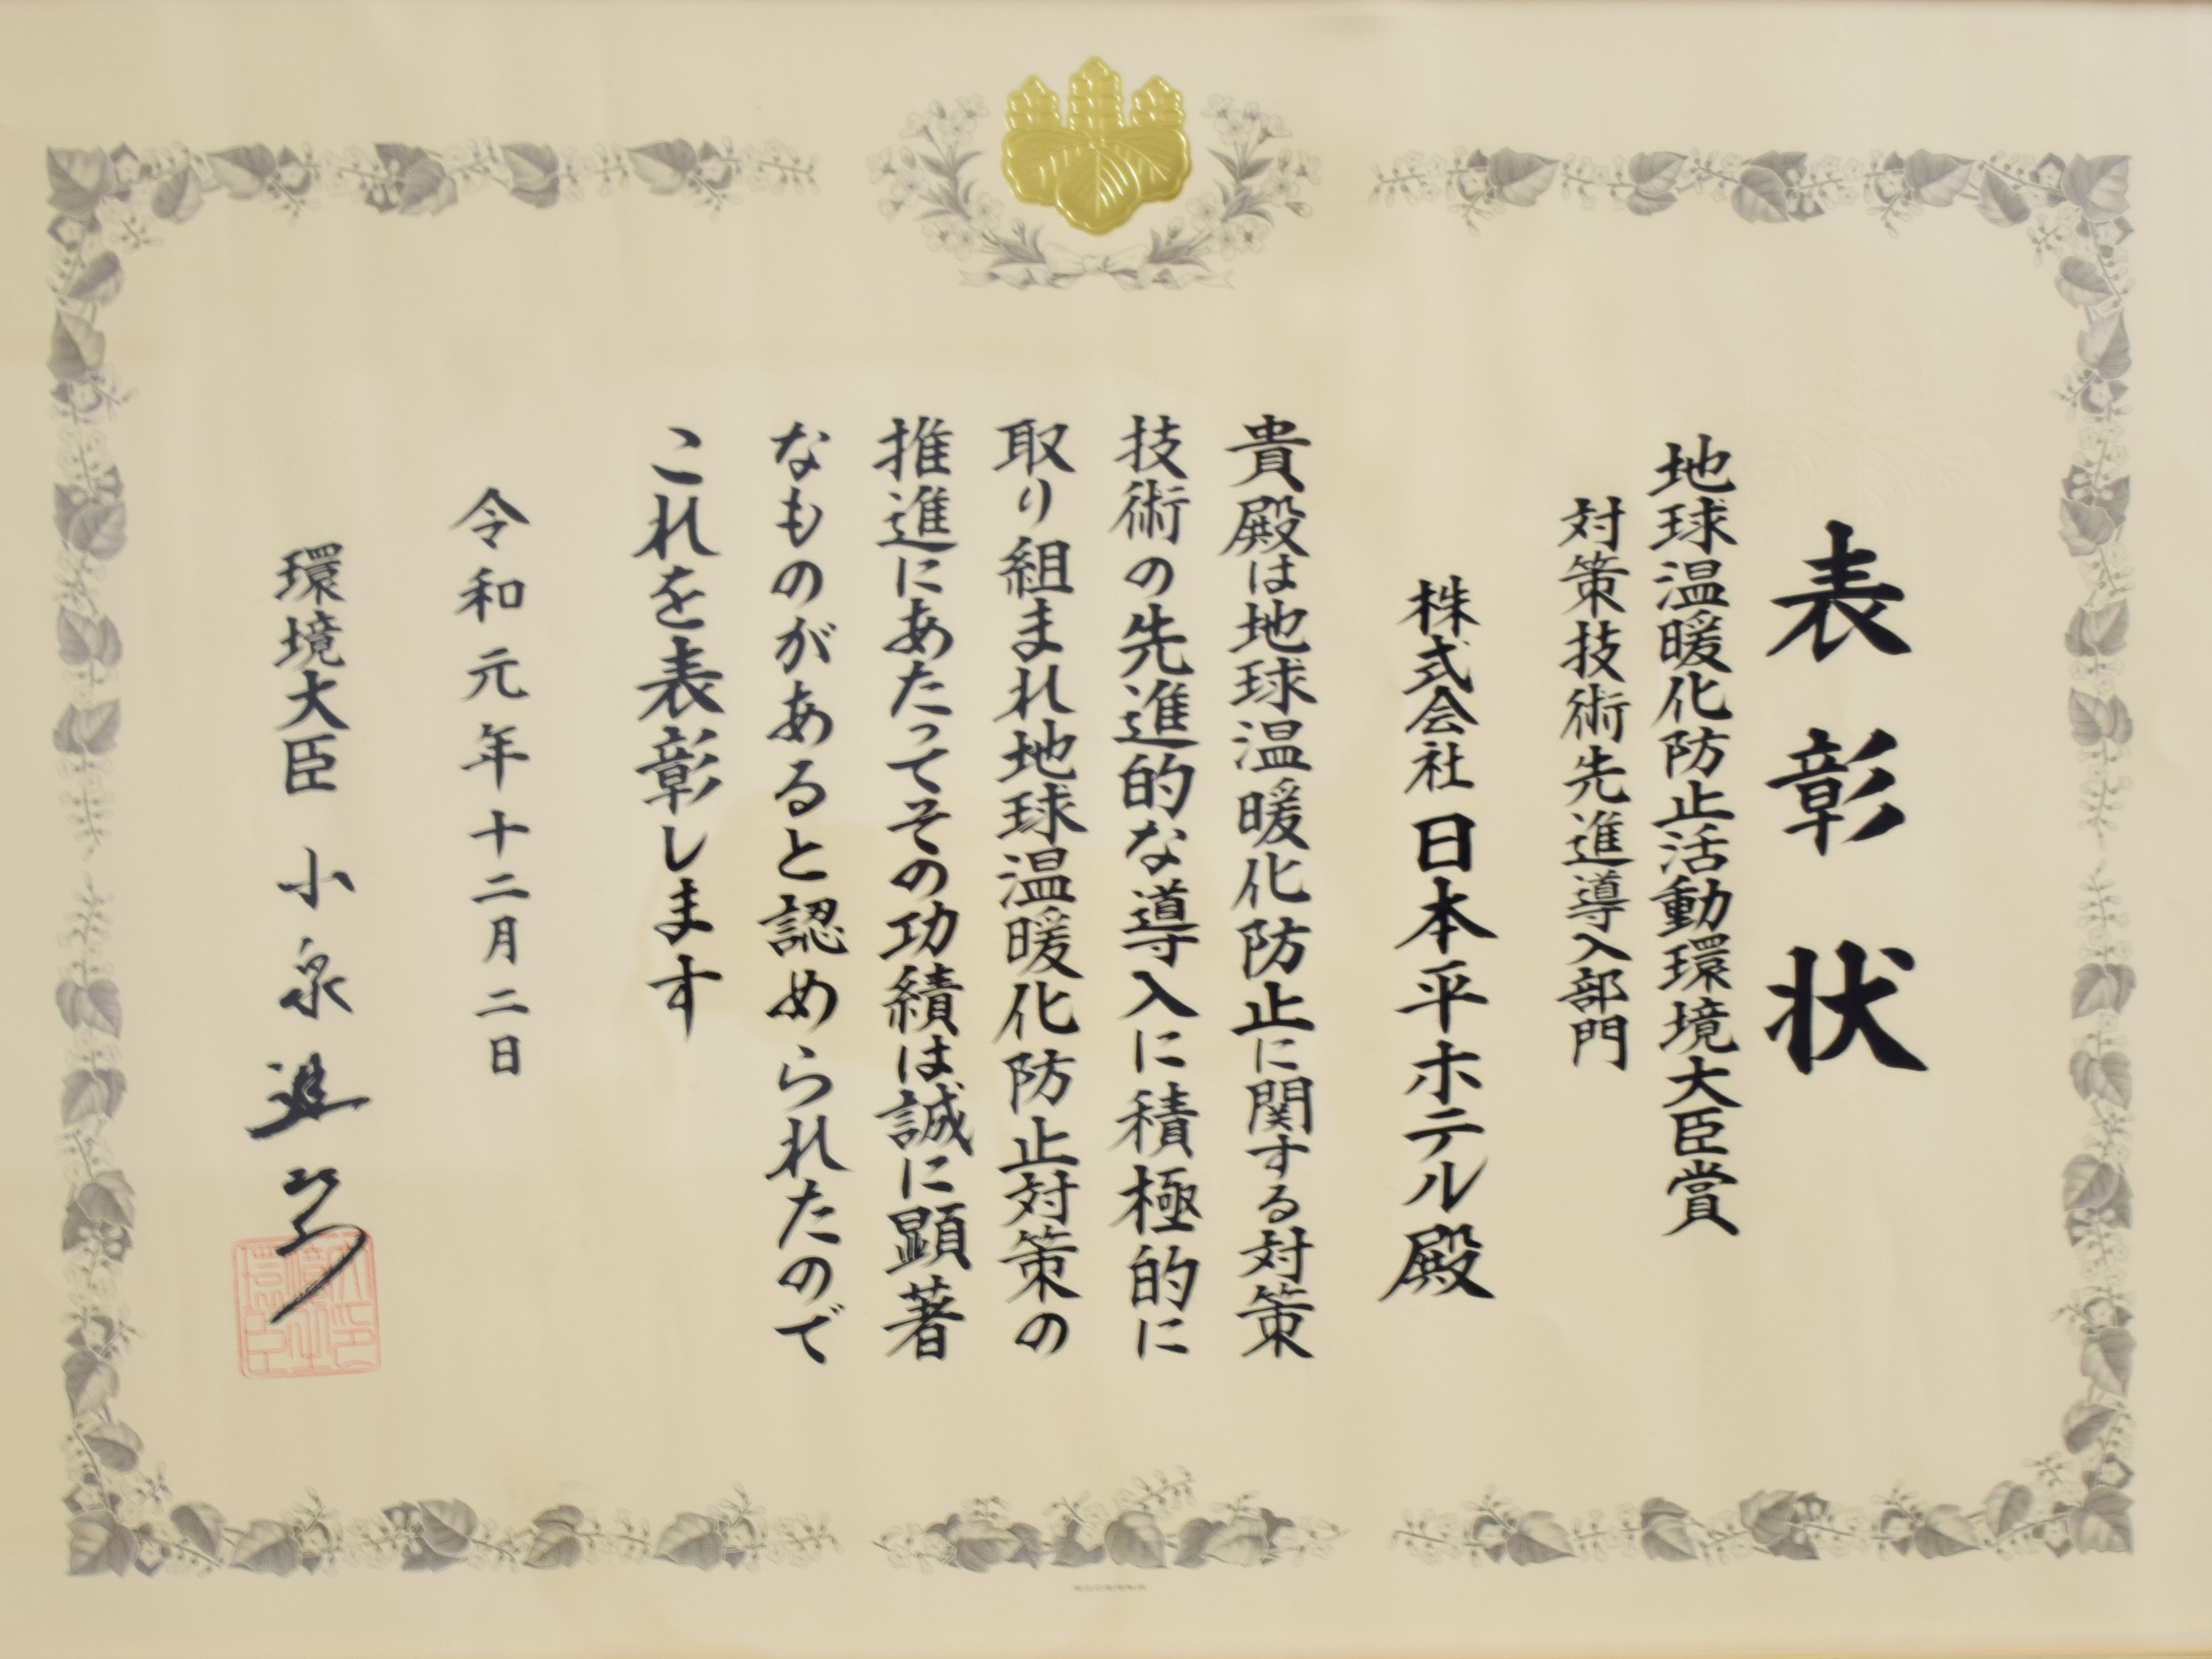 表彰状
地球温暖化防止活動環境大臣賞
対策技術先進導入部門
株式会社日本平ホテル殿
貴殿は地球温暖化防止に関する対策
技術の先進的な導入に積極的に
取り組まれ地球温暖化防止対策の
推進にあたってその功績は誠に顕著
なものがあると認められたので
これを表彰します
令和元年十二月二日
環境大臣 小泉進次郎